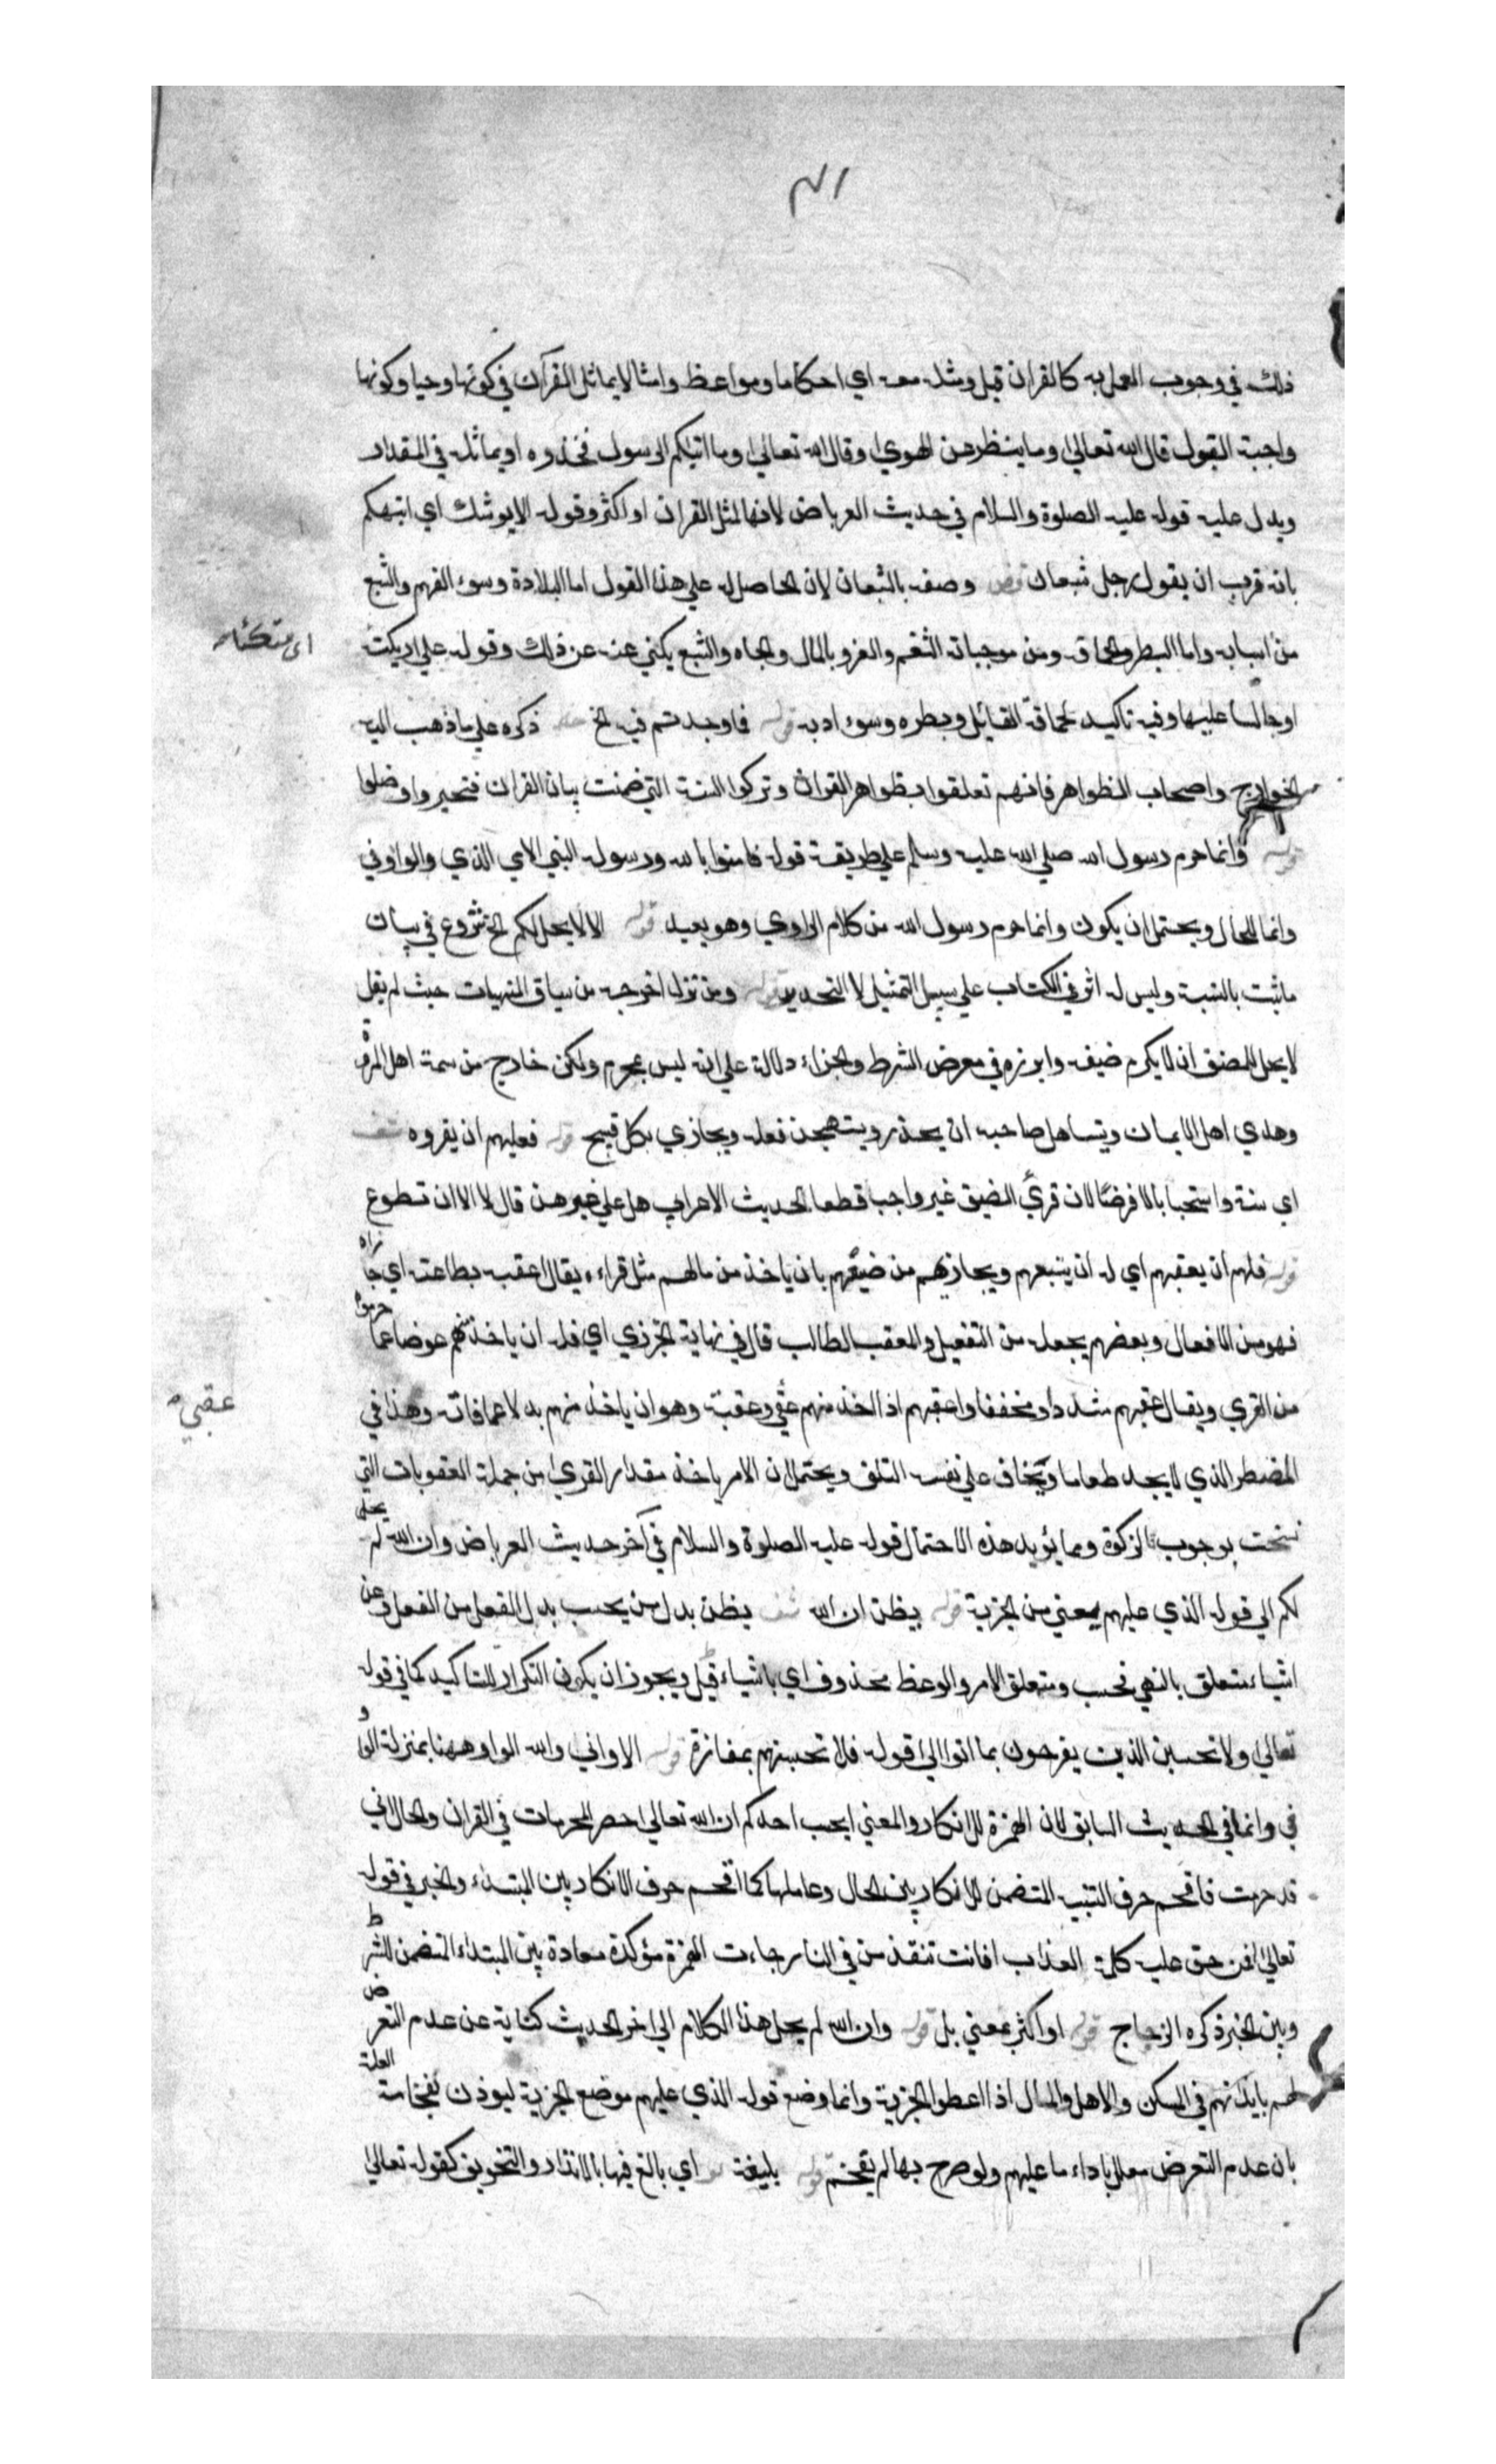 ٣١
ذلك في وجوب العمل به كالقران قيل ومثله معه اي احكاما ومواعظ وامثالا يماثل القرآن في كونها وحيا وكونها
واجبة القبول قال الله تعالي وما ينطق عن الهوي وقال الله تعالي وما اتيكم الرسول فخذوه او يماثله في المقدار
ويدل عليه قوله عليه الصلوة والسلام في حديث العرباض لانها لمثل القران او اكثر وقوله الا يوشك اي انبهكم
بانه قريب ان يقول رجل شبعان وصفه بالشبعان لان الحاصل له علي هذا القول اما البلادة وسوء الفهم والشبع
من اسبابه واما البطر والحماقة ومن موجباته التنعم والغرور بالمال والجاه والشبع يكني عنه عن ذلك وقوله علي اريكته
اي متكئا
او جالسا عليها وفيه تاكيد لحماقة القائل وبطره وسوء ادبه قوله فما وجدتم فيه الخ ذكره علي ما ذهب اليه
الخوارج واصحاب الظواهر فانهم تعلقوا بظواهر القران وتركوا السنة التي ضمنت بيان القران فتحيروا وضلوا
قوله وانما حرم رسول الله صلي الله عليه وسلم علي طريقة قوله فامنوا بالله ورسوله النبي الامي الذي والواو في
وانما للحال ويحتمل ان يكون وانما حرم رسول الله من كلام الراوي وهو بعيد قوله الا لا يحل لكم الخ شروع في بيان
ما ثبت بالسنة وليس له اثر في الكتاب علي سبيل التمثيل لا التحديد قوله ومن نزل اخرجه من سياق المنهيات حيث لم يقل
لا يحل للمضيف ان لا يكرم ضيفه وابرزه في معرض الشرط والجزاء دلالة علي انه ليس بمحرم ولكن خارج من سمة اهل المروة
وهدي اهل الايمان ويتساهل صاحبه ان يحذر ويستهجن فعله ويجازي بكل قبيح قوله فعليهم ان يقروه
اي سنة واستحبابا لا فرضا لان قري الضيف غير واجب قطعا لحديث الاعرابي هل علي غيرهن قال لا الا ان تطوع
قوله فلهم ان يعقبهم اي له ان يتبعهم ويجازيهم من ضيعهم بان ياخذ من مالهم مثل قراه يقال اعقبه بطاعته اي جازاه
فهو من الافعال وبعضهم يجعله من التفعيل والمعقب الطالب قال في نهاية الجزري اي فله ان ياخذ منهم عوضا عما حرموا
من القري ويقال عقبهم مشددا ومخففا واعقبهم اذا اخذ منهم عقبي وعقبة وهو ان ياخذ منهم بدلا عما فاته وهذا في
عقبي
المضطر الذي لا يجد طعاما ويخاف علي نفسه التلف ويحتمل ان الامر باخذ مقدار القري من جملة العقوبات التي
نسخت بوجوب الزكوة ومما يؤيد هذه الاحتمال قوله عليه الصلوة والسلام في آخر حديث العرباض وان الله لم يحل
لكم الي قوله الذي عليهم يعني من الجزية قوله يظن ان الله يظن بدل من يحسب بدل الفعل من الفعل وعن
اشياء متعلق بالنهي فحسب ومتعلق الامر والوعظ محذوف اي باشياء قيل ويجوز ان يكون التكرار للتاكيد كما في قوله
تعالي ولا تحسبن الذين يفرحون بما اتوا الي قوله فلا تحسبنهم بمفازة قوله الا واني والله الواو ههنا بمنزلة الواو
في وانما في الحديث السابق لان الهمزة للانكار والمعني ايحسب احدكم ان الله تعالي احصر المحرمات في القران والحال اني
قد حرمت فاقحم حرف التنبيه المتضمن للانكار بين الحال وعاملها كما اقحم حرف الانكار بين المبتداء والخبر في قوله
تعالي افمن حق عليه كلمة العذاب افانت تنقذ من في النار جاءت الهمزة مؤكدة معادة بين المبتداء المتضمن للشرط
وبين الخبر ذكره الزجاج قوله او اكثر بمعني بل قوله وان الله لم يحل هذا الكلام الي اخر الحديث كناية عن عدم التعرض
لهم بايذائهم في المسكن والاهل والمال اذا اعطوا الجزية وانما وضع قوله الذي عليهم موضع الجزية ليوذن بفخامة العلة
بان عدم التعرض معلل باداء ما عليهم ولو صرح بها لم يفخم قوله بليغة اي بالغ فيها بالانذار والتخويف كقوله تعالي